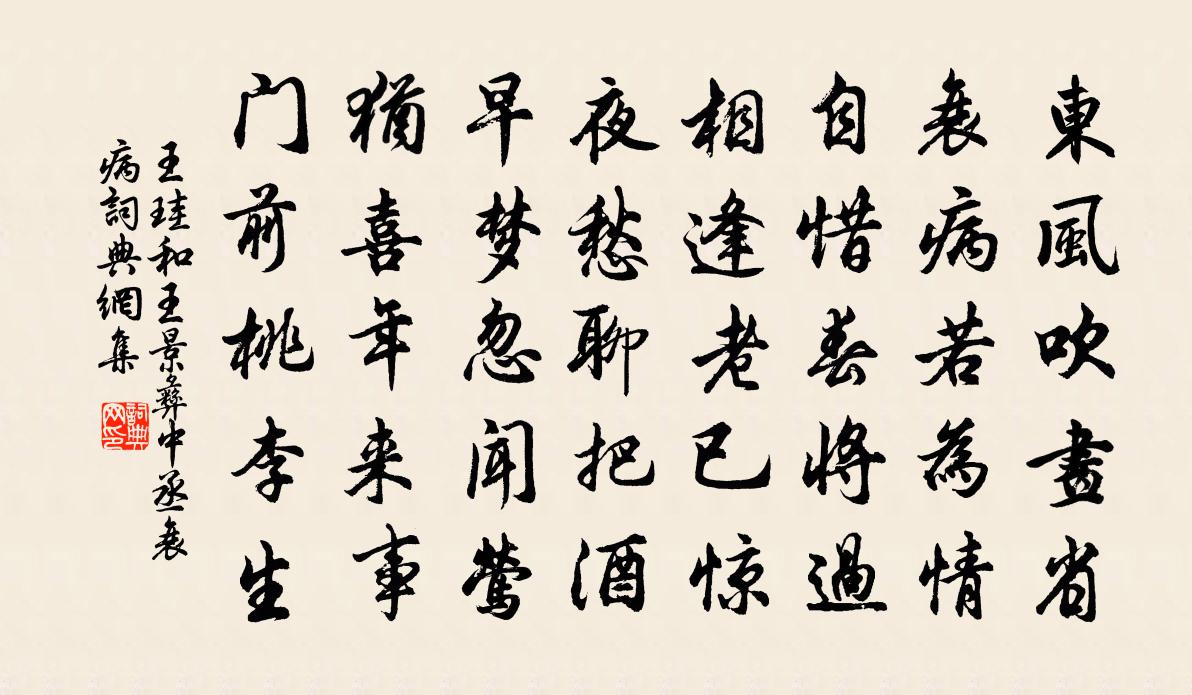 東風吹晝省
衰病若為情
自惜春將過
相逢老已惊
夜愁聊把酒
早梦忽闻莺
猶喜年来事
门前桃李生
王珪和王景彝中丞衰
病詞典網集
詞典
网印